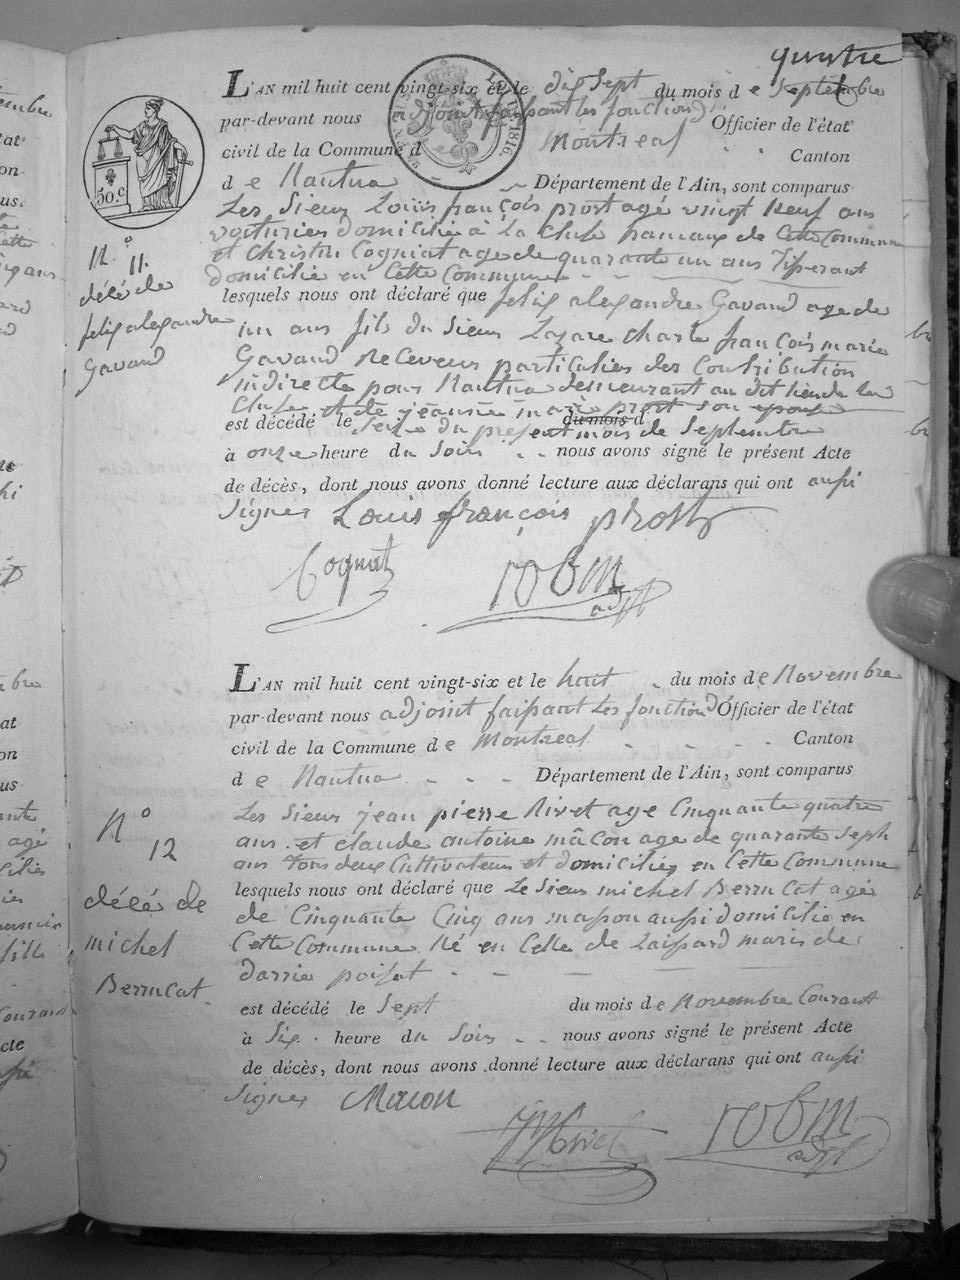 quatre
L'AN mil huit cent vingt-six et le dix Sept du mois de Septembre
par-devant nous adjoint faisant les fonctions Officier de l'état
civil de la Commune d Montreal Canton
de Nantua Département de l'Ain, sont comparus
Les Sieur Louis françois prost agé vingt Neuf ans
voiturier domicilié à la Cluse hameaux de Cette Commune
et Christin Cogniat age de quarante un ans Tisserant
domicilié en Cette Commune
N° 11.
décé de
felix alexandre
Gavand
lesquels nous ont déclaré que felix alexandre Gavand age de
un ans fils du Sieur Lazare charle françois marie
Gavand Receveur particulier des Contribution
indirette pour Nantua demeurant au dit lieu de la
Cluse et de jeanne marie prost son epouse
est décédé le Seize du present mois de Septembre du mois d
à onze heure du Soir nous avons signé le présent Acte
de décès, dont nous avons donné lecture aux déclarans qui ont aussi
Signer Louis françois prost
Cognat robin adjt
L'AN mil huit cent vingt-six et le huit du mois de Novembre
par-devant nous adjoint faissant Les fonction Officier de l'état
civil de la Commune de Montreal Canton
de Nantua Département de l'Ain, sont comparus
N° 12
décé de
michel
Berrucat
Les Sieur jean pierre Rivet age Cinquante quatre
ans et claude antoine mâcon age de quarante Seph
ans Tous deux Cultivateur et domiciliés en Cette Commune
lesquels nous ont déclaré que Le Sieur michel Berrucat agé
de Cinquante Cinq ans masson aussi domicilié en
Cette Commune Né en Celle de Laissard maris de
darrie poisat
est décédé le Sept du mois de Novembre Courant
à Six heure du Soir nous avons signé le présent Acte
de décès, dont nous avons donné lecture aux déclarans qui ont aussi
Signer Macon
Rivet robin adjt